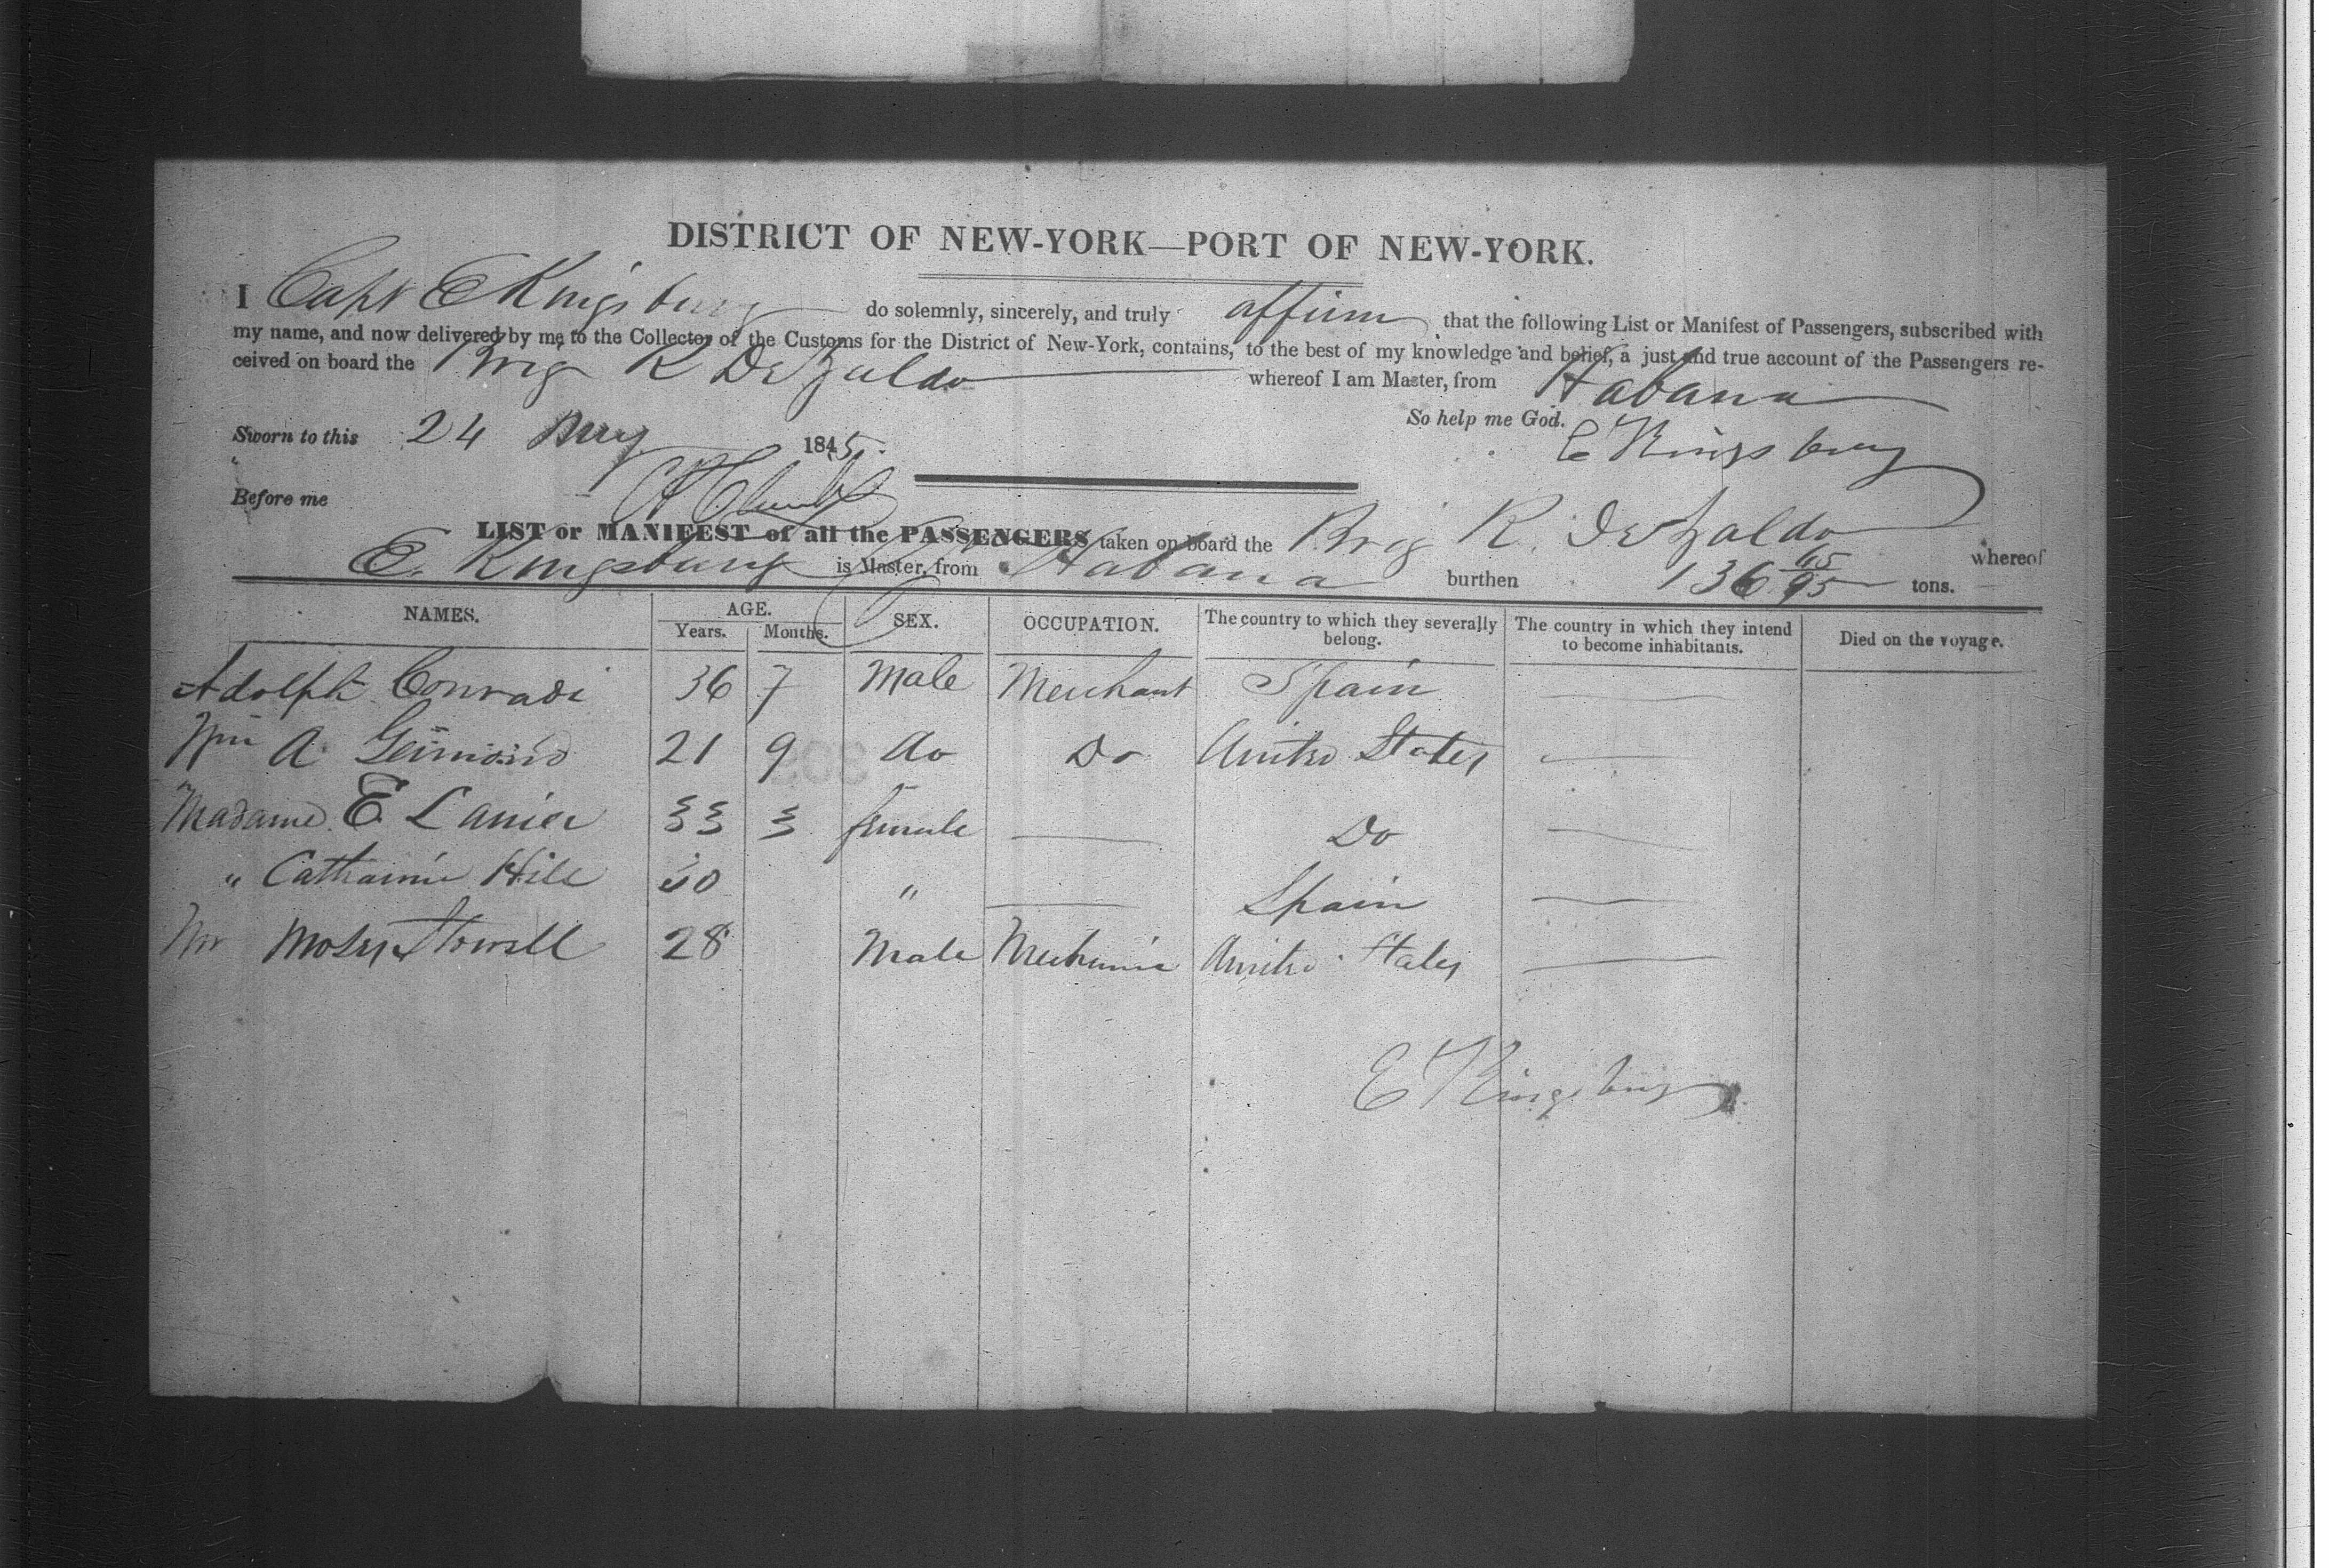 DISTRICT OF NEW-YORK—PORT OF NEW-YORK.
I Capt E Kingsbury do solemnly, sincerely, and truly affirm that the following List or Manifest of Passengers, subscribed with
my name, and now delivered by me to the Collector of the Customs for the District of New-York, contains, to the best of my knowledge and belief, a just and true account of the Passengers re-
ceived on board the Brig R De Zaldo whereof I am Master, from Habana
So help me God.
Sworn to this 24 May 1845. E Kingsbury
Before me
LIST or MANIFEST of all the PASSENGERS taken on board the Brig R. De Zaldo whereof
E. Kingsbury is Master, from Habana burthen 136 65/95 tons.
NAMES. AGE. Years. Months. SEX. OCCUPATION. The country to which they severally belong. The country in which they intend to become inhabitants. Died on the voyage.
Adolph Conradi 36 7 Male Merchant Spain
Wm A. 21 9 do Do United States
Madame E Lanier 33 3 female Do
" Catharine Hill 30 " Spain
Mr Moses Stowell 28 Male Mechanic United States
E Kingsbury